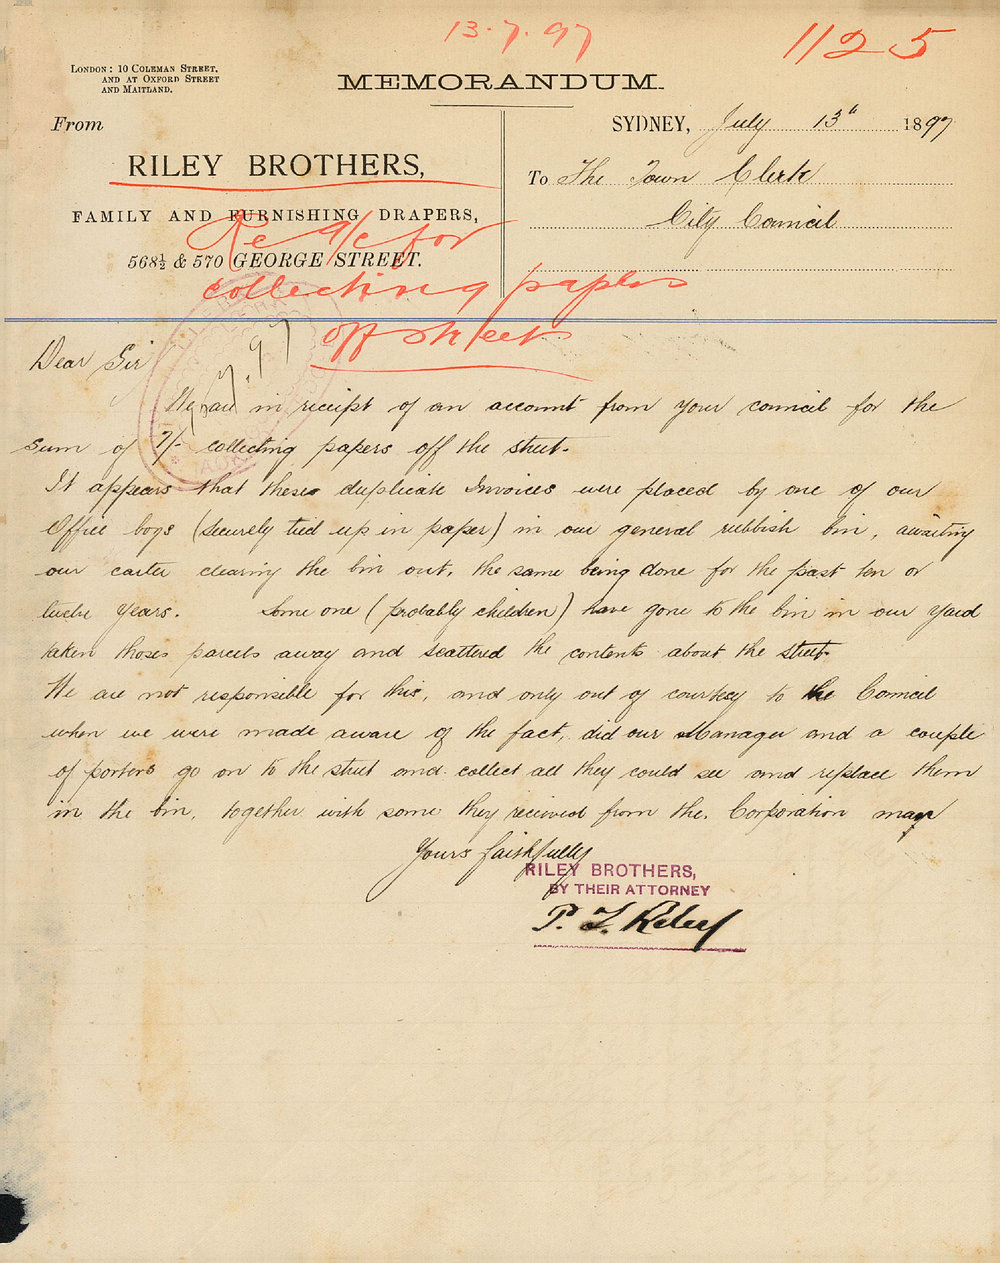 13.7.97
1125
LONDON: 10 COLEMAN STREET,
AND AT OXFORD STREET
AND MAITLAND.
MEMORANDUM.
From
RILEY BROTHERS,
FAMILY AND FURNISHING DRAPERS,
568½ & 570 GEORGE STREET.
SYDNEY, July 13" 1897
To The Town Clerk
City Council
Re a/c for
collecting papers
off streets
Dear Sir
We are in receipt of an account from your council for the
sum of 7/- collecting papers off the street.
It appears that these duplicate Invoices were placed by one of our
Office boys (securely tied up in paper) in our general rubbish bin, awaiting
our carter clearing the bin out, the same being done for the past ten or
twelve years. Some one (probably children) have gone to the bin in our yard
taken those parcels away and scattered the contents about the street.
We are not responsible for this, and only out of courtesy to the Council
when we were made aware of the fact, did our Manager and a couple
of porters go on to the street and collect all they could see and replace them
in the bin, together with some they received from the Corporation man
Yours faithfully
RILEY BROTHERS,
BY THEIR ATTORNEY
P. J. Riley